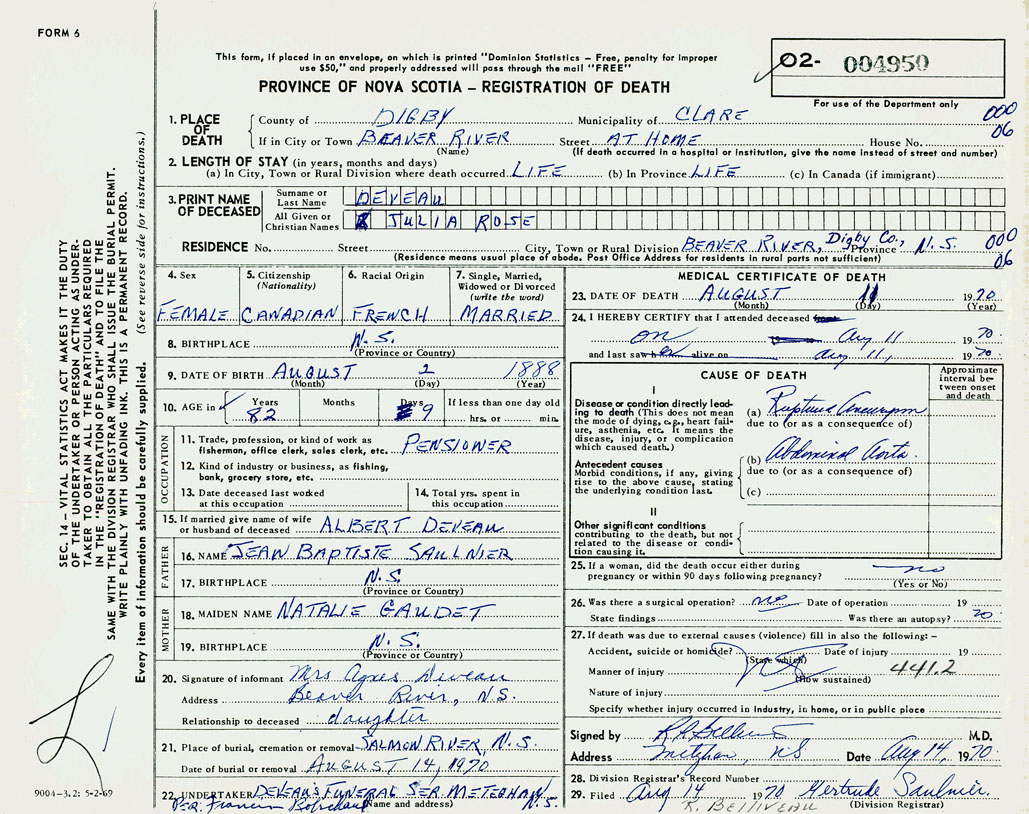 FORM 6
This form, if placed in an envelope, on which is printed "Dominion Statistics – Free, penalty for improper
use $50," and properly addressed will pass through the mail "FREE"
02- 004950
For use of the Department only
PROVINCE OF NOVA SCOTIA – REGISTRATION OF DEATH
1. PLACE OF DEATH County of DIGBY Municipality of CLARE 000
If in City or Town BEAVER RIVER Street AT HOME House No. 06
(Name) (If death occurred in a hospital or institution, give the name instead of street and number)
2. LENGTH OF STAY (in years, months and days)
(a) In City, Town or Rural Division where death occurred LIFE (b) In Province LIFE (c) In Canada (if immigrant)
3. PRINT NAME OF DECEASED Surname or Last Name DEVEAU
All Given or Christian Names JULIA ROSE
RESIDENCE No. Street City, Town or Rural Division BEAVER RIVER, Digby Co., Province N.S. 000
(Residence means usual place of abode. Post Office Address for residents in rural parts not sufficient) 06
4. Sex 5. Citizenship (Nationality) 6. Racial Origin 7. Single, Married, Widowed or Divorced (write the word)
FEMALE CANADIAN FRENCH MARRIED
8. BIRTHPLACE N.S.
(Province or Country)
9. DATE OF BIRTH AUGUST 2 1888
(Month) (Day) (Year)
10. AGE in Years Months Days If less than one day old
82 9 hrs. or min.
OCCUPATION
11. Trade, profession, or kind of work as
fisherman, office clerk, sales clerk, etc. PENSIONER
12. Kind of industry or business, as fishing,
bank, grocery store, etc.
13. Date deceased last worked at this occupation 14. Total yrs. spent in this occupation
15. If married give name of wife
or husband of deceased ALBERT DEVEAU
FATHER
16. NAME JEAN BAPTISTE SAULNIER
17. BIRTHPLACE N.S.
(Province or Country)
MOTHER
18. MAIDEN NAME NATALIE GAUDET
19. BIRTHPLACE N.S.
(Province or Country)
20. Signature of informant Mrs Agnes Deveau
Address Beaver River, N.S.
Relationship to deceased daughter
21. Place of burial, cremation or removal SALMON RIVER, N.S.
Date of burial or removal AUGUST 14, 1970
22. UNDERTAKER DEVEAU'S FUNERAL SER. METEGHAN N.S.
(Name and address)
MEDICAL CERTIFICATE OF DEATH
23. DATE OF DEATH AUGUST 11 1970
(Month) (Day) (Year)
24. I HEREBY CERTIFY that I attended deceased from
on Aug 11 1970
and last saw h er alive on Aug 11, 1970
CAUSE OF DEATH
Approximate interval between onset and death
I
Disease or condition directly leading to death (This does not mean the mode of dying, e.g., heart failure, asthenia, etc. It means the disease, injury, or complication which caused death.)
(a) Ruptured Aneurysm
due to (or as a consequence of)
Antecedent causes
Morbid conditions, if any, giving rise to the above cause, stating the underlying condition last.
(b) Abdominal Aorta.
due to (or as a consequence of)
(c)
II
Other significant conditions
contributing to the death, but not
related to the disease or condition causing it.
25. If a woman, did the death occur either during
pregnancy or within 90 days following pregnancy? no
(Yes or No)
26. Was there a surgical operation? no Date of operation 19
State findings Was there an autopsy?
27. If death was due to external causes (violence) fill in also the following: –
Accident, suicide or homicide? Date of injury 19
(State which)
Manner of injury 441.2
(How sustained)
Nature of injury
Specify whether injury occurred in industry, in home, or in public place
Signed by M.D.
Address NS Date Aug 14, 1970
28. Division Registrar's Record Number
29. Filed Aug 14 1970 Gertrude Saulnier.
R. BELLIVEAU (Division Registrar)
SEC. 14 – VITAL STATISTICS ACT MAKES IT THE DUTY
OF THE UNDERTAKER OR PERSON ACTING AS UNDER-
TAKER TO OBTAIN ALL THE PARTICULARS REQUIRED
IN THE "REGISTRATION OF DEATH" AND TO FILE THE
SAME WITH THE DIVISION REGISTRAR WHO SHALL ISSUE THE BURIAL PERMIT.
WRITE PLAINLY WITH UNFADING INK. THIS IS A PERMANENT RECORD.
Every item of information should be carefully supplied. (See reverse side for instructions.)
9004-3.2: 5-2-69